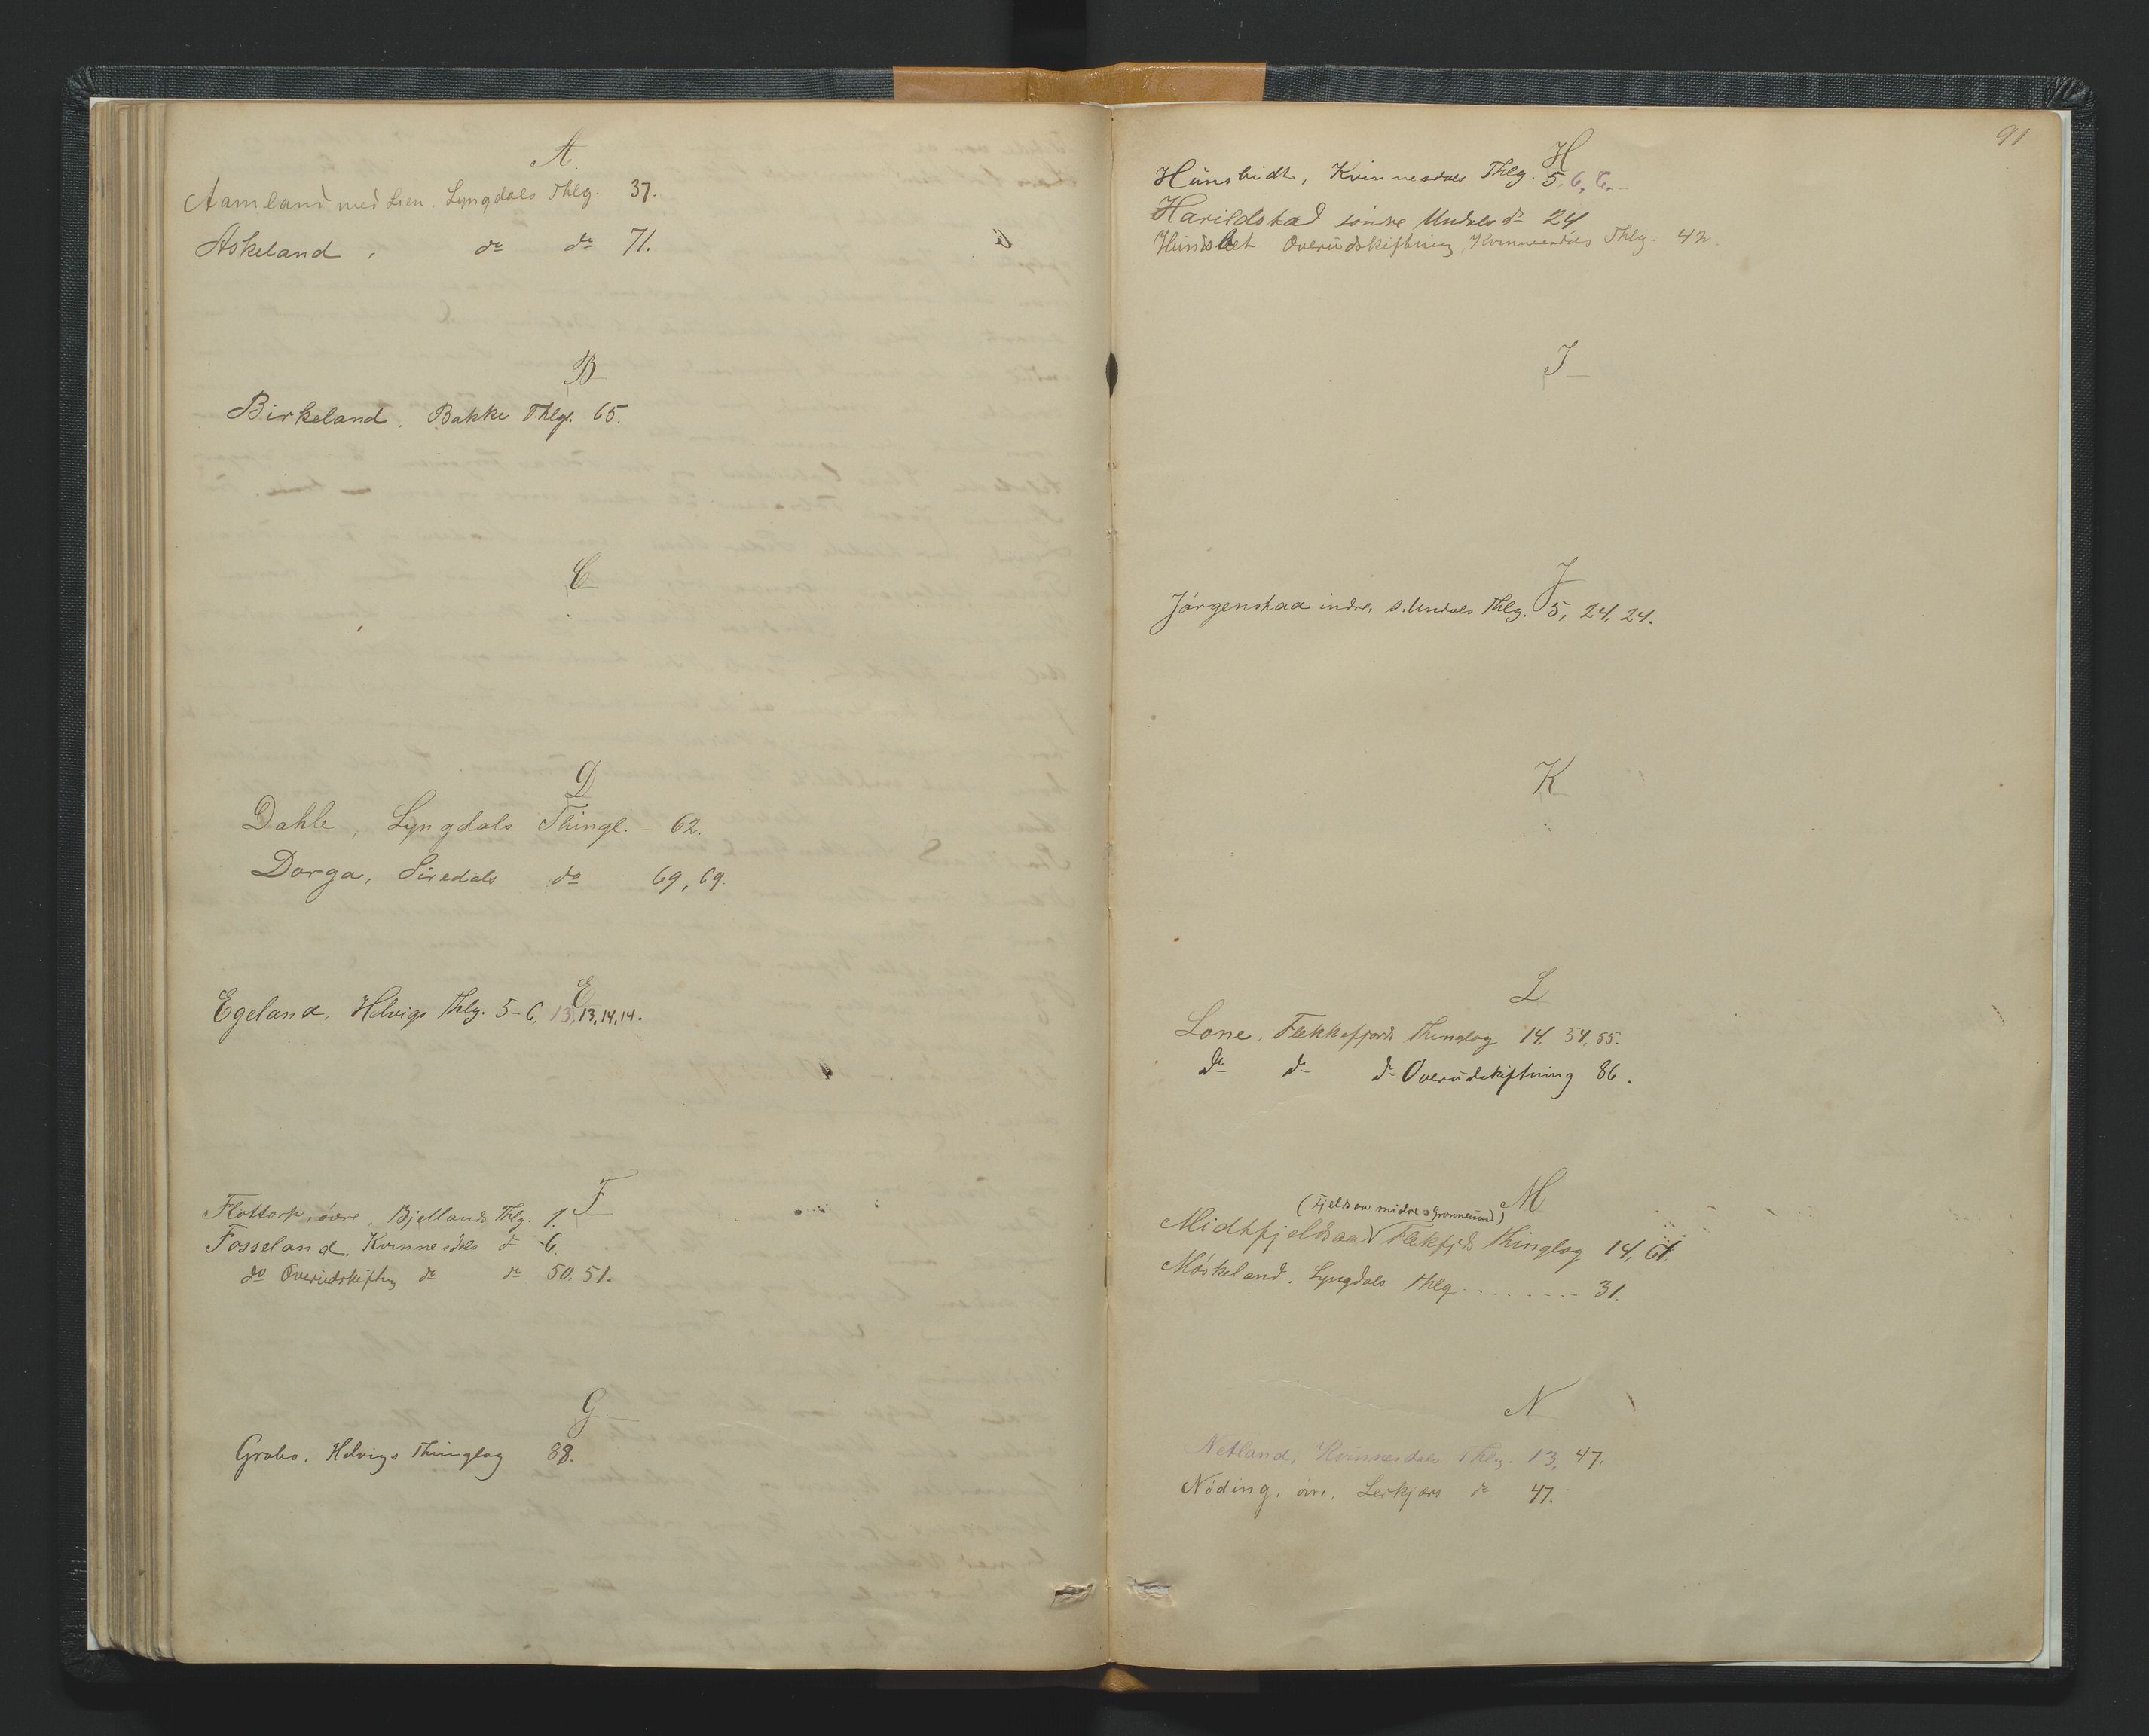 A.
Aamland med Lien. Lyngdals Thlg. 37.
Askeland, do do 71.
B
Birkeland. Bakke Thlg. 65.
C
D
Dahle, Lyngdals Thingl. - 62.
Dorga, Siredals do 69, 69.
E
Egeland, Helvigs Thlg. 5-6, 13, 13, 14, 14.
F
Flottorp, øvre, Bjellands Thlg. 1.
Fosseland, Kvinnesdals do 6.
do Overudskiftng do do 50. 51.
G.
Grobo. Helvigs Thinglag 88.
91
H
Hunsbidt, Kvinnesdals Thlg. 5, 6, 6.
Harildstad søndre Undals do 24
Hunsbet Overudskiftning, Kvinnesdals Thlg. 42.
I
J
Jørgenstad indre, S. Undals Thlg. 5, 24, 24.
K
L
Lone, Flekkefjords Thinglag 14, 54, 55.
do do do Overudskiftning 86.
M
(Fjeldsaa midre Grønnesund)
Midtfjeldsaa Flekfjds Thinglag 14, 61.
Møskeland. Lyngdals Thlg. ........ 31.
N
Netland, Kvinnesdals Thlg. 13, 47.
Nøding, øvre, Lerkjærs do 47.